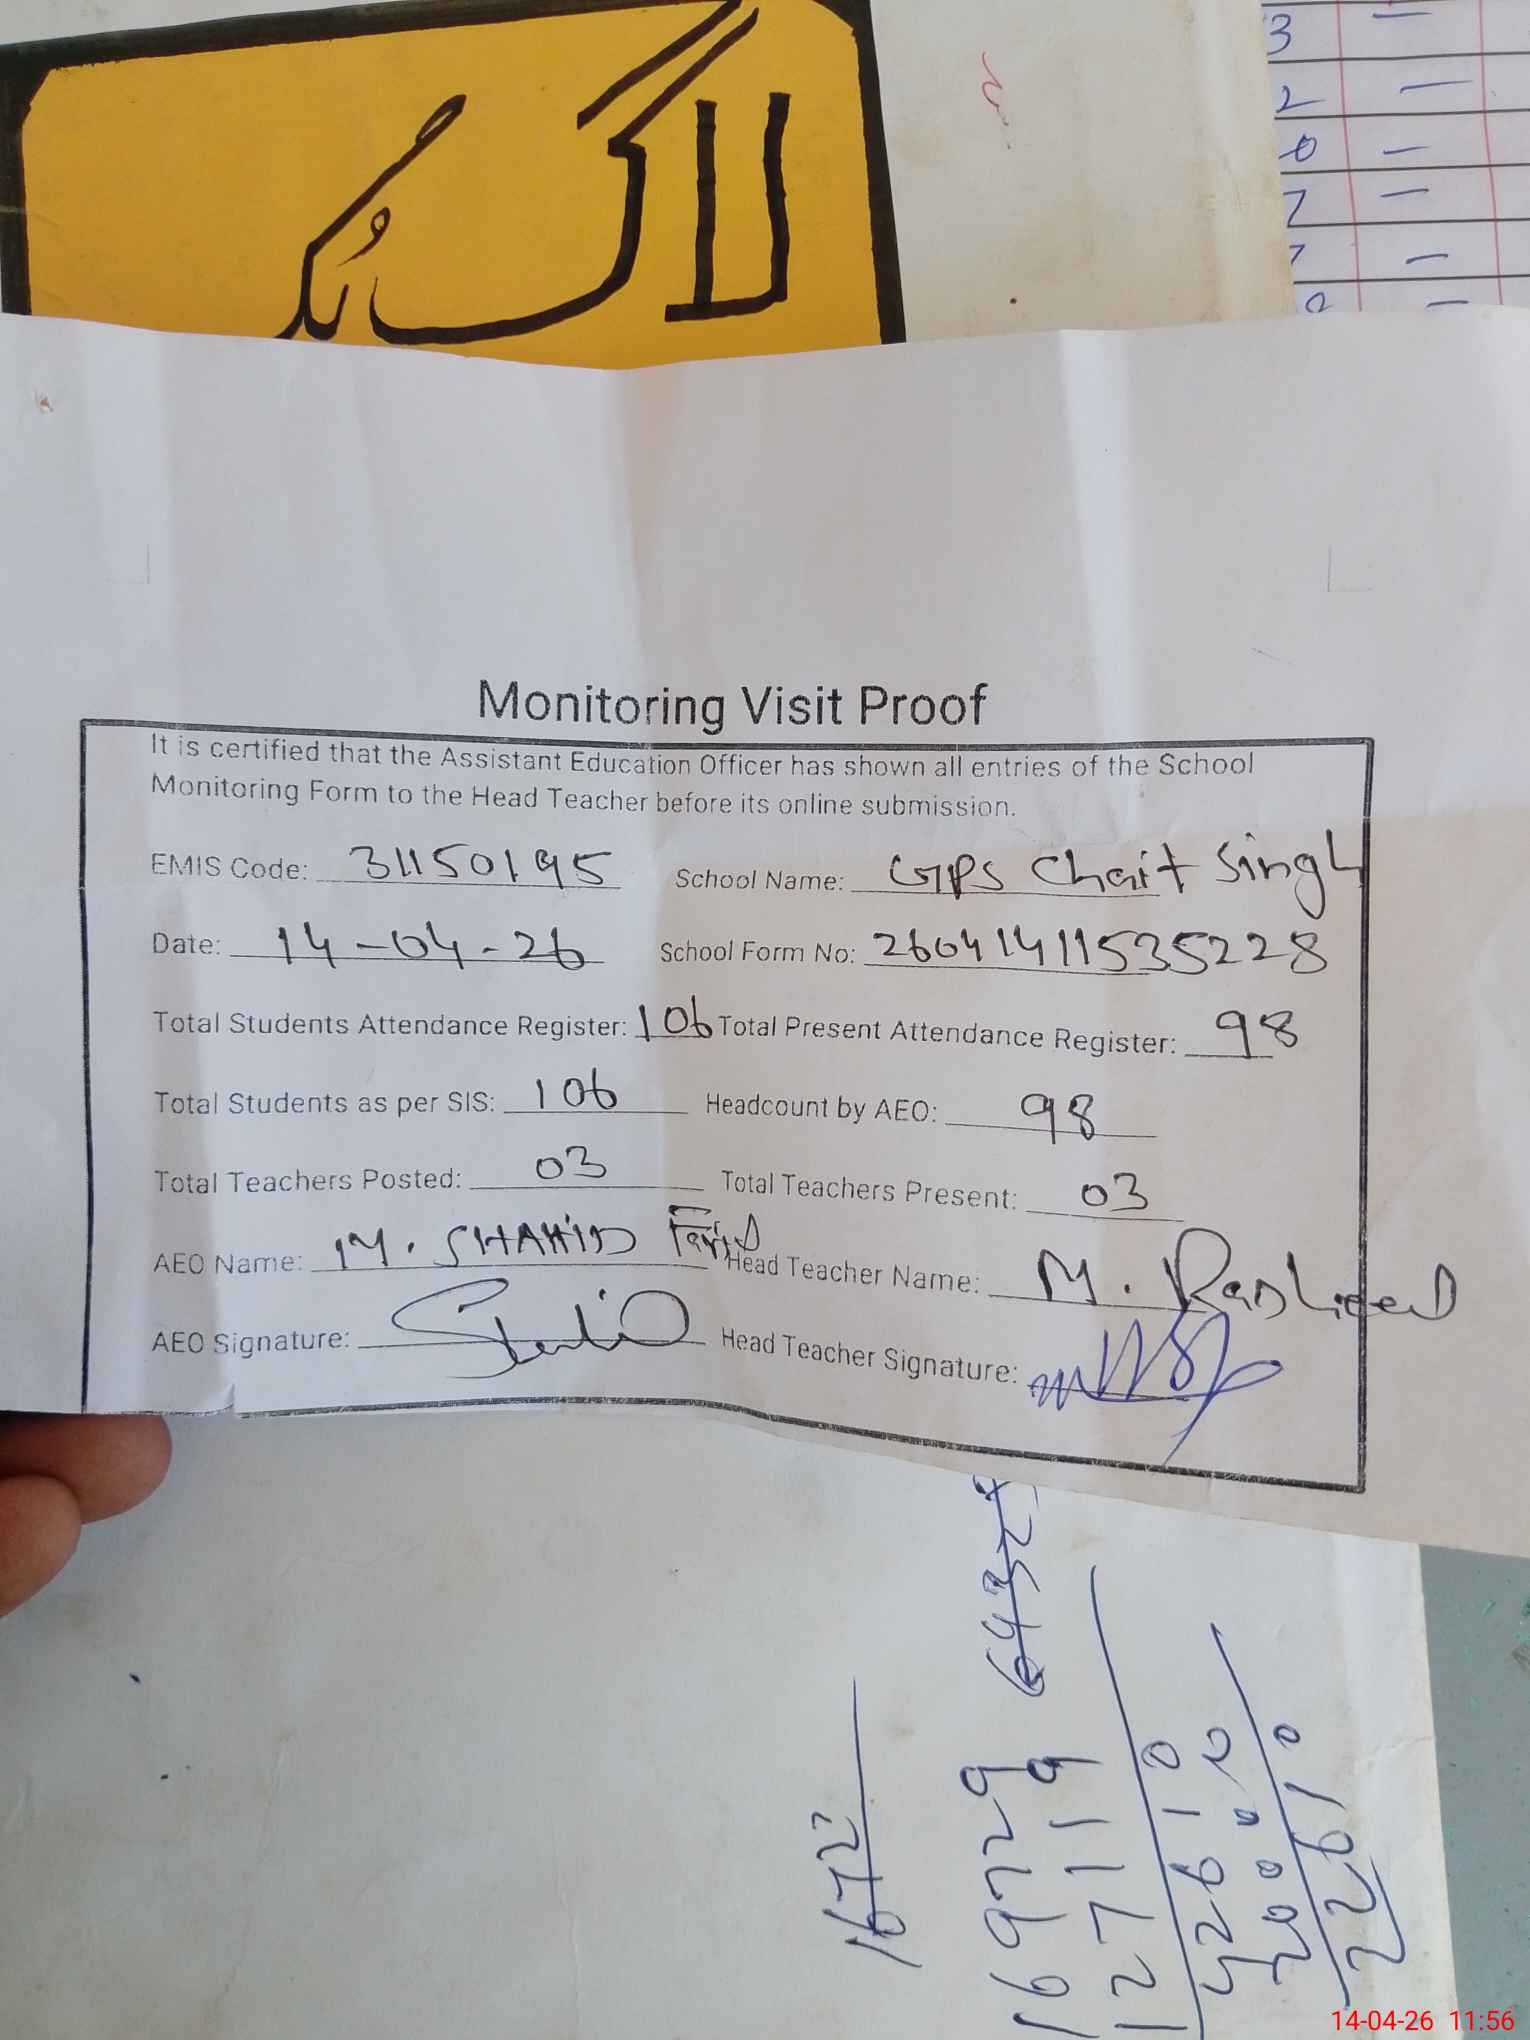 لاگ بُک
3 —
2 —
0 —
7 —
7 —
Monitoring Visit Proof
It is certified that the Assistant Education Officer has shown all entries of the School
Monitoring Form to the Head Teacher before its online submission.
EMIS Code: 31150195 School Name: GPS Chait Singh
Date: 14-04-26 School Form No: 26041411535228
Total Students Attendance Register: 106 Total Present Attendance Register: 98
Total Students as per SIS: 106 Headcount by AEO: 98
Total Teachers Posted: 03 Total Teachers Present: 03
AEO Name: M. SHAHID Farid Head Teacher Name: M. Rasheed
AEO Signature: Head Teacher Signature:
1672
16929
12719
42810
22810
14-04-26 11:56